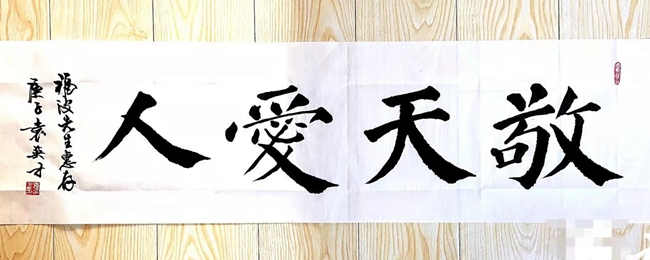 敬天愛人
福波先生惠存
庚子袁英才